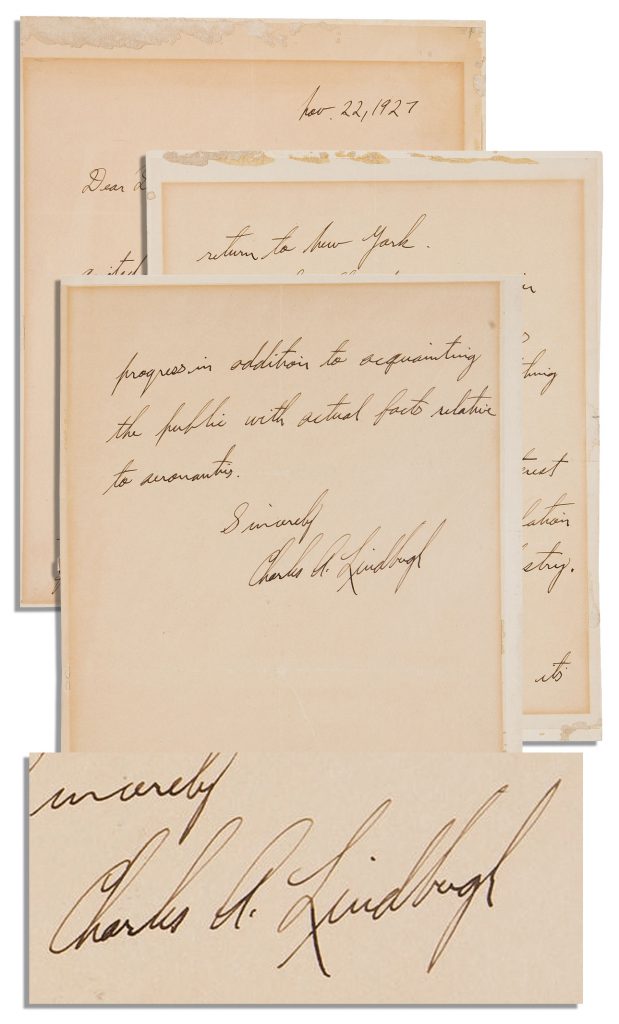 Nov. 22, 1927
Dear
return to New York.
progress in addition to acquainting
the public with actual facts relative
to aeronautics.
Sincerely
Charles A. Lindbergh
its
Sincerely
Charles A. Lindbergh